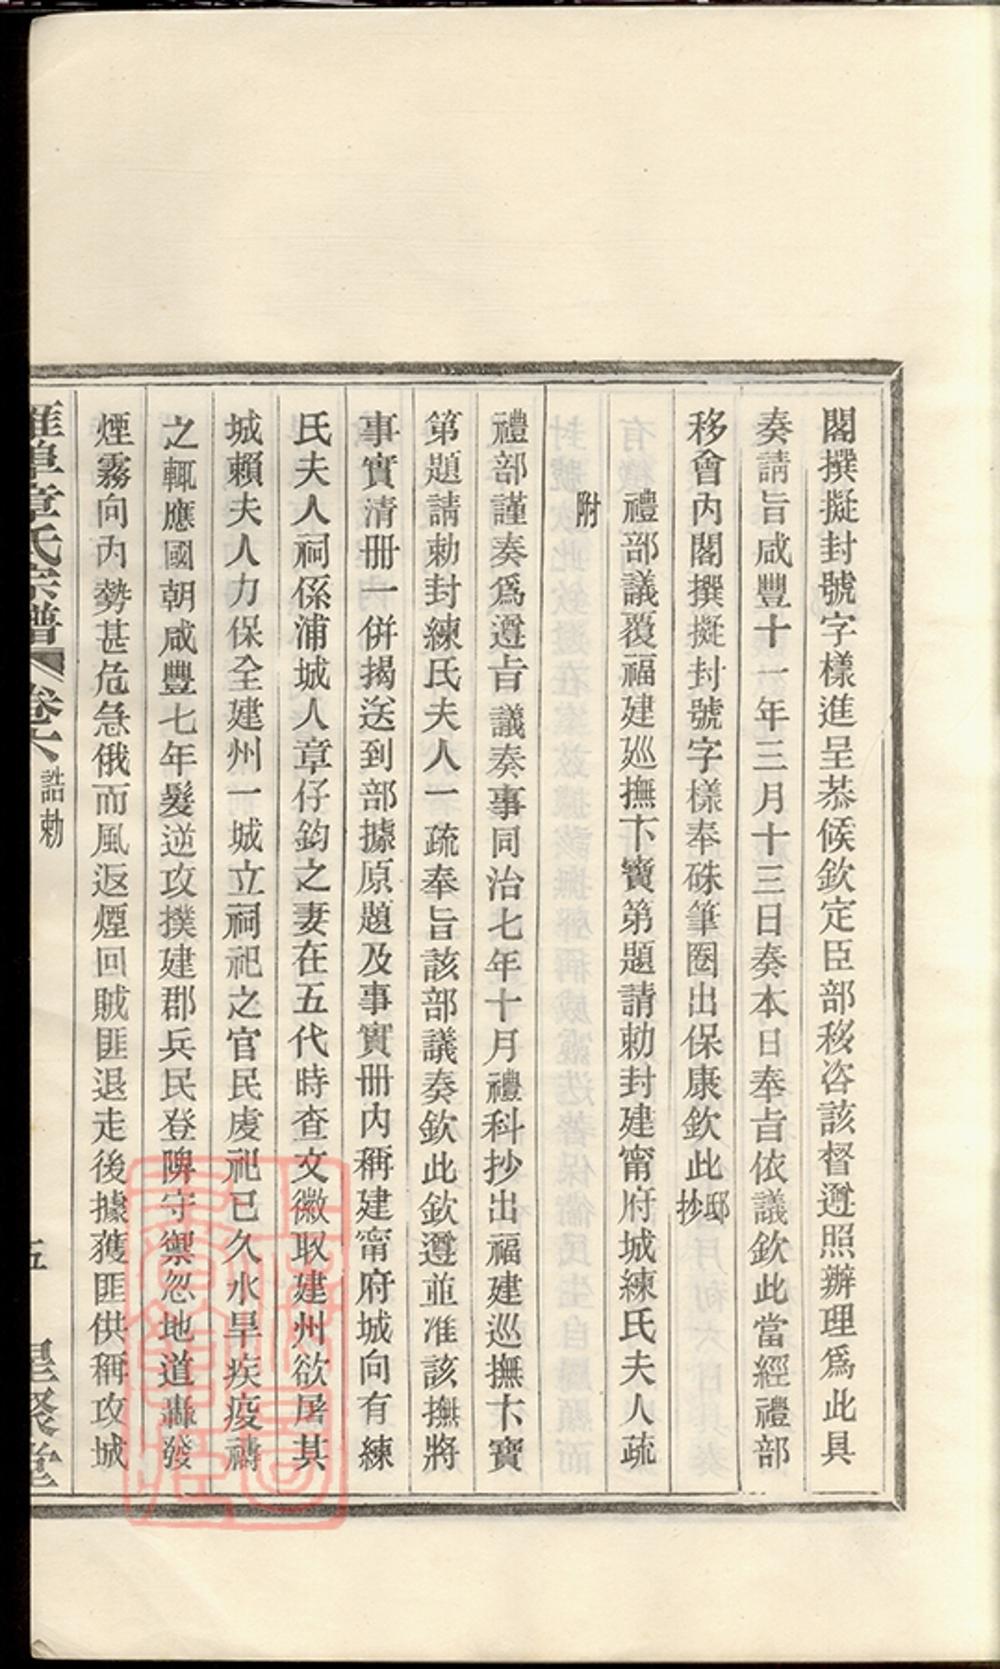 閣撰擬封號字樣進呈恭候欽定臣部移咨該督遵照辦理爲此具
奏請旨咸豐十一年三月十三日奏本日奉旨依議欽此當經禮部
移會內閣撰擬封號字樣奉硃筆圈出保康欽此邸抄
禮部議覆福建巡撫卞寶第題請勅封建甯府城練氏夫人疏
附
禮部謹奏爲遵旨議奏事同治七年十月禮科抄出福建巡撫卞寶
第題請勅封練氏夫人一疏奉旨該部議奏欽此欽遵並准該撫將
事實清冊一併揭送到部據原題及事實冊內稱建甯府城向有練
氏夫人祠係浦城人章仔鈞之妻在五代時查文徽取建州欲屠其
城賴夫人力保全建州一城立祠祀之官民虔祀已久水旱疾疫禱
之輒應國朝咸豐七年髮逆攻撲建郡兵民登陴守禦忽地道轟發
煙霧向內勢甚危急俄而風返煙回賊匪退走後據獲匪供稱攻城
章氏宗譜 卷六 誥勅 五